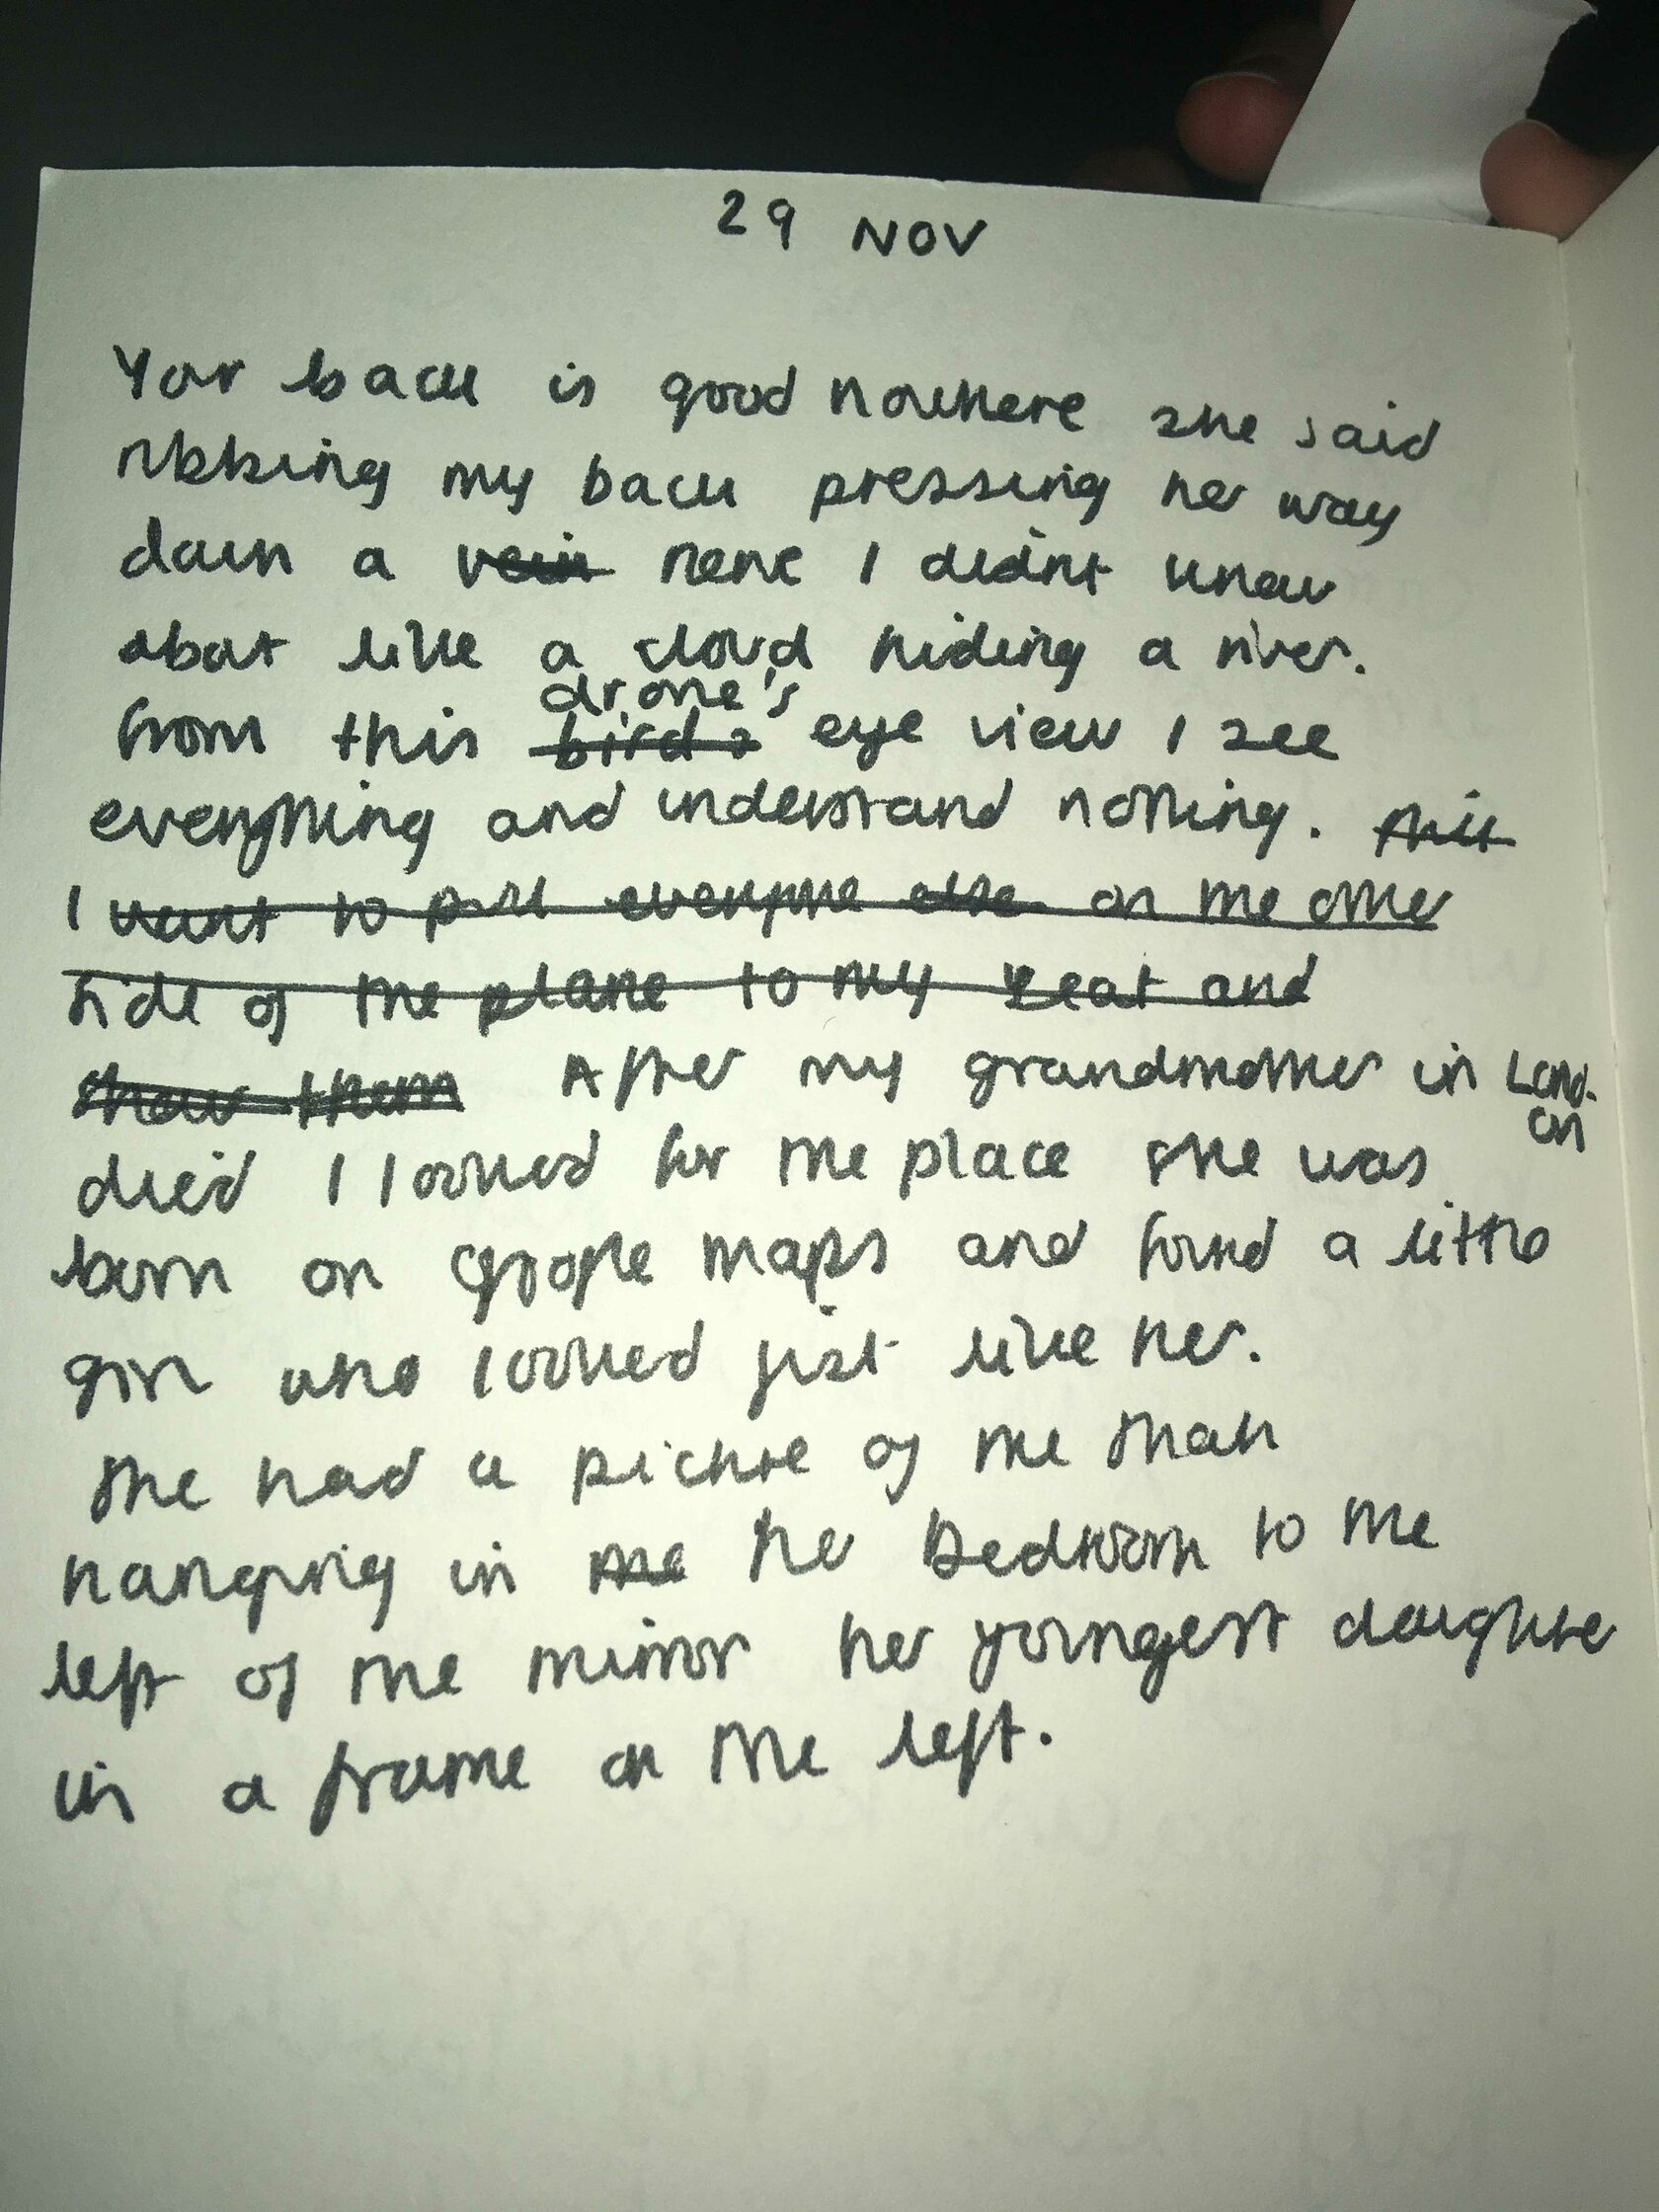 29 NOV
Your back is good nowhere she said
rubbing my back pressing her way
down a vein nerve I didn't know
about like a cloud hiding a river.
drone's
from this bird's eye view I see
everything and understand nothing.
I want to pull everyone else on the other
side of the plane to my seat and
show them After my grandmother in Lond-
on
died I looked for the place she was
born on google maps and found a little
girl who looked just like her.
She had a picture of the shah
hanging in the her bedroom to the
left of the mirror her youngest daughter
in a frame on the left.